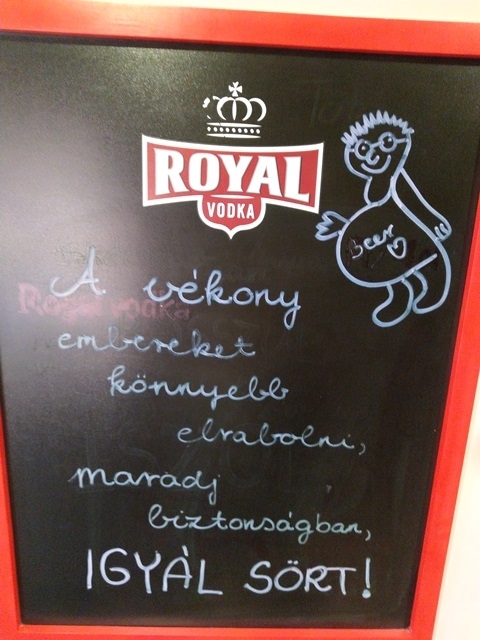 ROYAL
VODKA
Beer
A vékony
Royal vodka
embereket
könnyebb
elrabolni,
maradj
biztonságban,
IGYÁL SÖRT!